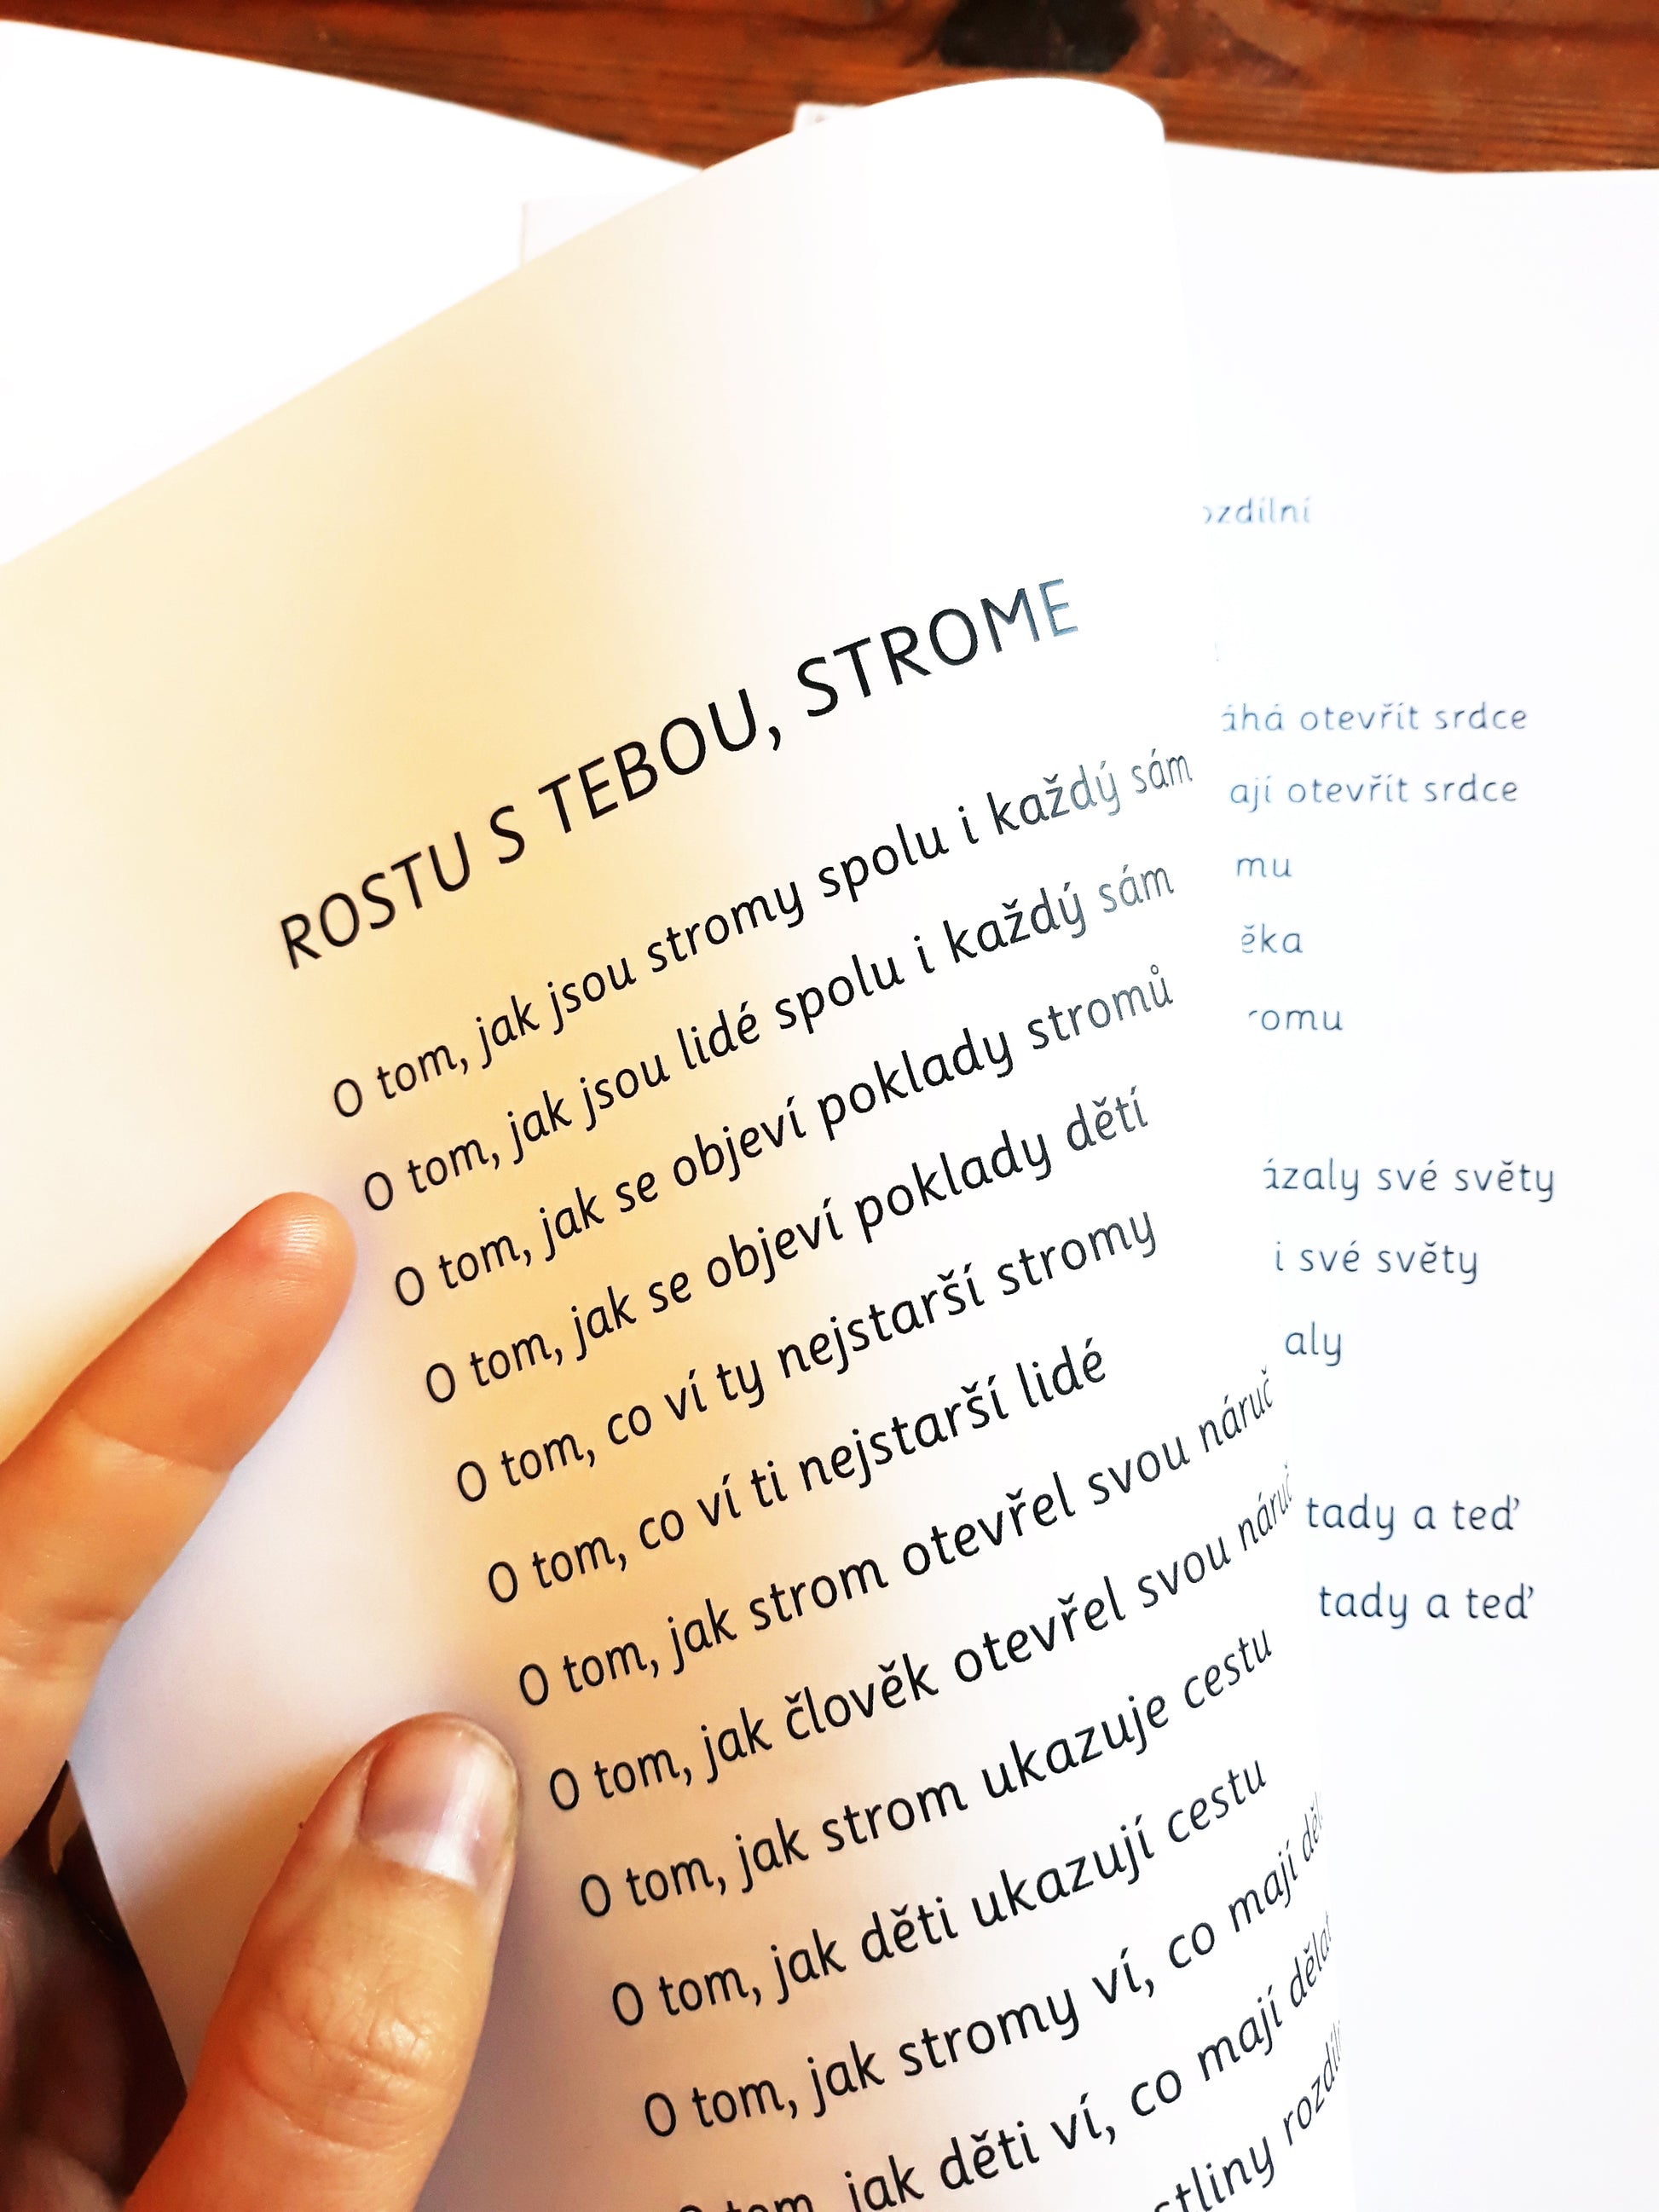 ROSTU S TEBOU, STROME
O tom, jak jsou stromy spolu i každý sám
O tom, jak jsou lidé spolu i každý sám
O tom, jak se objeví poklady stromů
O tom, jak se objeví poklady dětí
O tom, co ví ty nejstarší stromy
O tom, co ví ti nejstarší lidé
O tom, jak strom otevřel svou náruč
O tom, jak člověk otevřel svou náruč
O tom, jak strom ukazuje cestu
O tom, jak děti ukazují cestu
O tom, jak stromy ví, co mají
O tom, jak děti ví, co mají dělat
otevřít srdce
otevřít srdce
své světy
i své světy
tady a teď
tady a teď